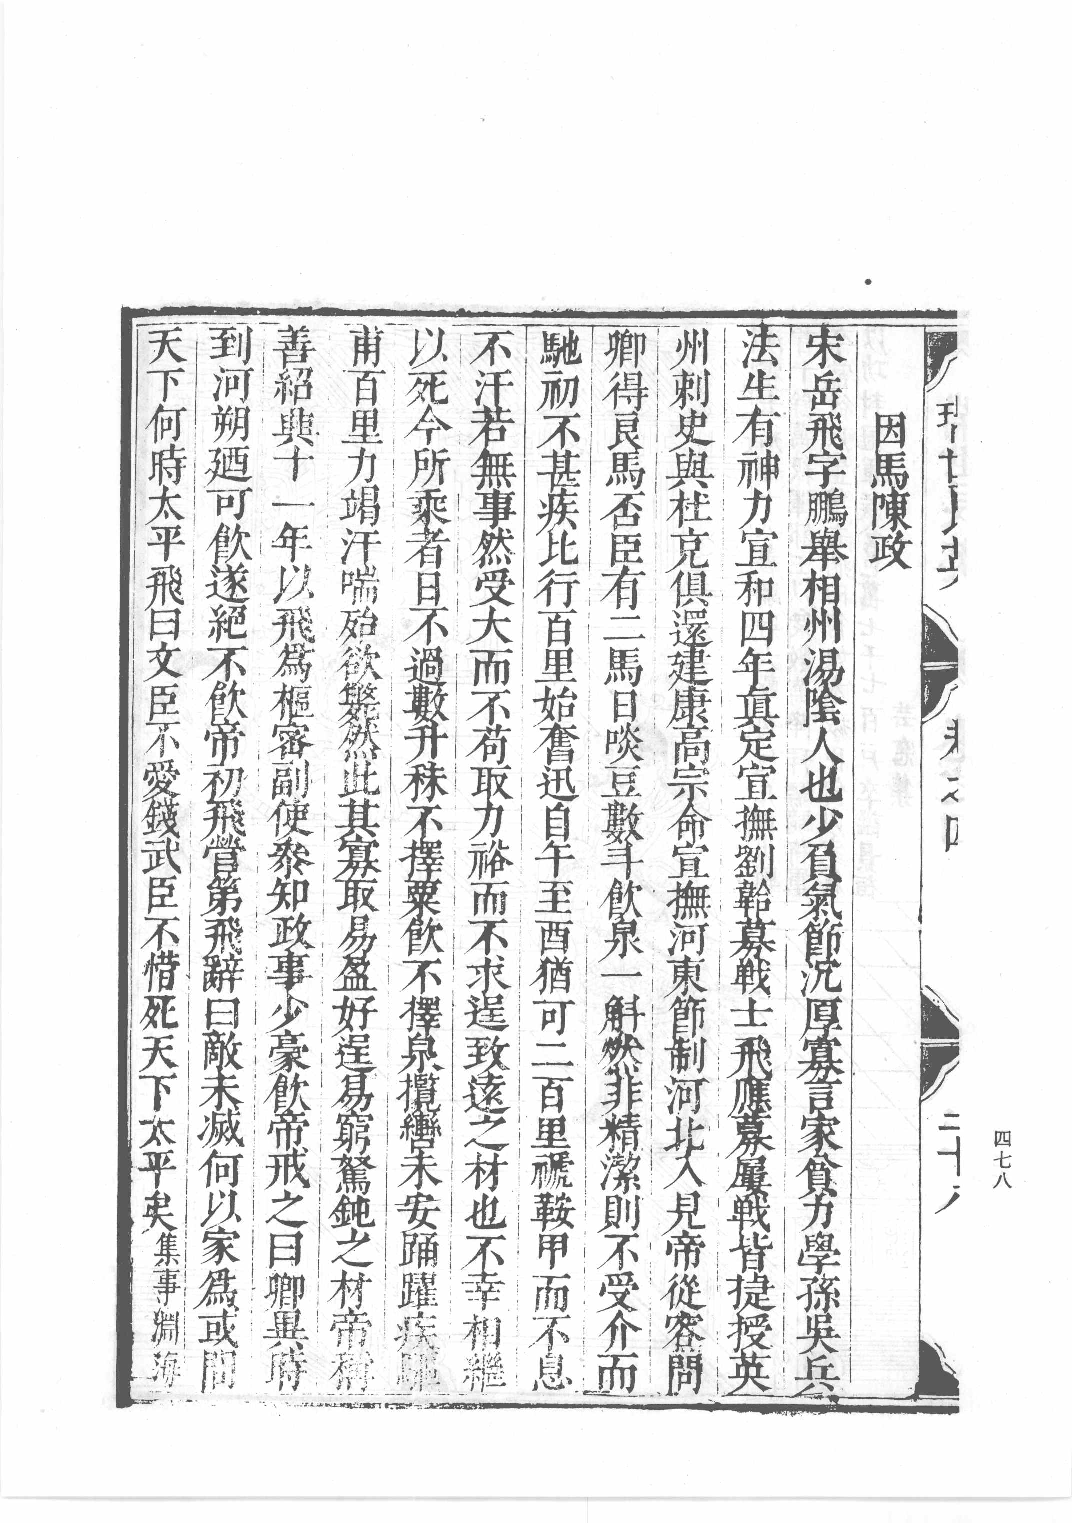 因馬陳政
宋岳飛字鵬舉相州湯陰人也少負氣節沉厚寡言家貧力學孫吳兵
法生有神力宣和四年眞定宣撫劉韐募戰士飛應募屢戰皆捷授英
州刺史與杜充俱還建康高宗命宣撫河東節制河北入見帝從容問
卿得良馬否臣有二馬日啖豆數斗飲泉一斛然非精潔則不受介而
馳初不甚疾比行百里始奮迅自午至酉猶可二百里褫鞍甲而不息
不汗若無事然受大而不苟取力裕而不求逞致遠之材也不幸相繼
以死今所乘者日不過數升秣不擇粟飲不擇泉攬轡未安踊躍疾驅
甫百里力竭汗喘殆欲斃然此其寡取易盈好逞易窮駑鈍之材帝稱
善紹興十一年以飛爲樞密副使叅知政事少豪飲帝戒之曰卿異時
到河朔廼可飲遂絕不飲帝初飛營第飛辭曰敵未滅何以家爲或問
天下何時太平飛曰文臣不愛錢武臣不惜死天下太平矣集事淵海
卷之四
二十八
四七八